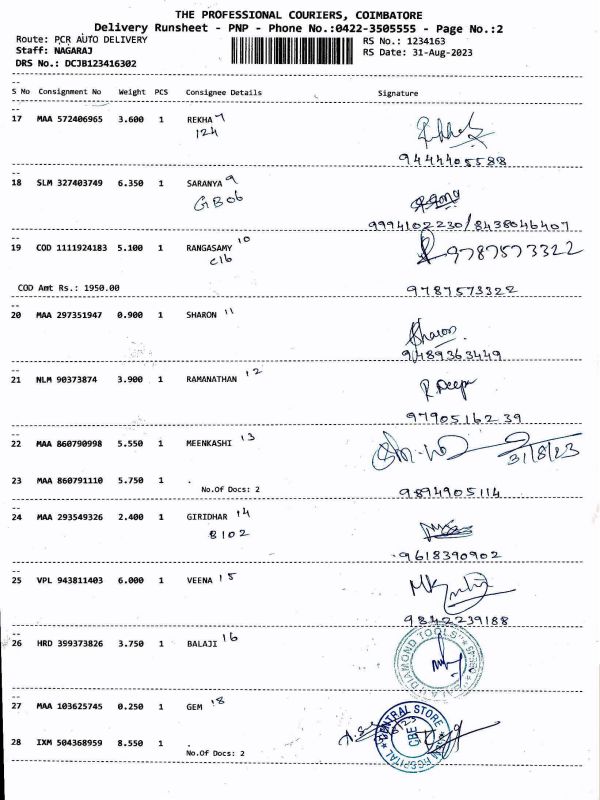 THE PROFESSIONAL COURIERS, COIMBATORE
Delivery Runsheet - PNP - Phone No.:0422-3505555 - Page No.:2
Route: PCR AUTO DELIVERY RS No.: 1234163
Staff: NAGARAJ RS Date: 31-Aug-2023
DRS No.: DCJB123416302
S No Consignment No Weight PCS Consignee Details Signature
17 MAA 572406965 3.600 1 REKHA 7
124
9444405588
18 SLM 327403749 6.350 1 SARANYA 9
GB06
9994102230/8438046407
19 COD 1111924183 5.100 1 RANGASAMY 10
C16 9787573322
COD Amt Rs.: 1950.00 9787573322
20 MAA 297351947 0.900 1 SHARON 11
Sharon
9489363449
21 NLM 90373874 3.900 1 RAMANATHAN 12
R Deepa
9790516239
22 MAA 860790998 5.550 1 MEENKASHI 13
31/8/23
23 MAA 860791110 5.750 1 .
No.Of Docs: 2 9894905114
24 MAA 293549326 2.400 1 GIRIDHAR 14
B102
9618390902
25 VPL 943811403 6.000 1 VEENA 15
9842239188
26 HRD 399373826 3.750 1 BALAJI 16
DIAMOND TOOLS
27 MAA 103625745 0.250 1 GEM 18
CENTRAL STORE
CBE
HOSPITAL
28 IXM 504368959 8.550 1 .
No.Of Docs: 2